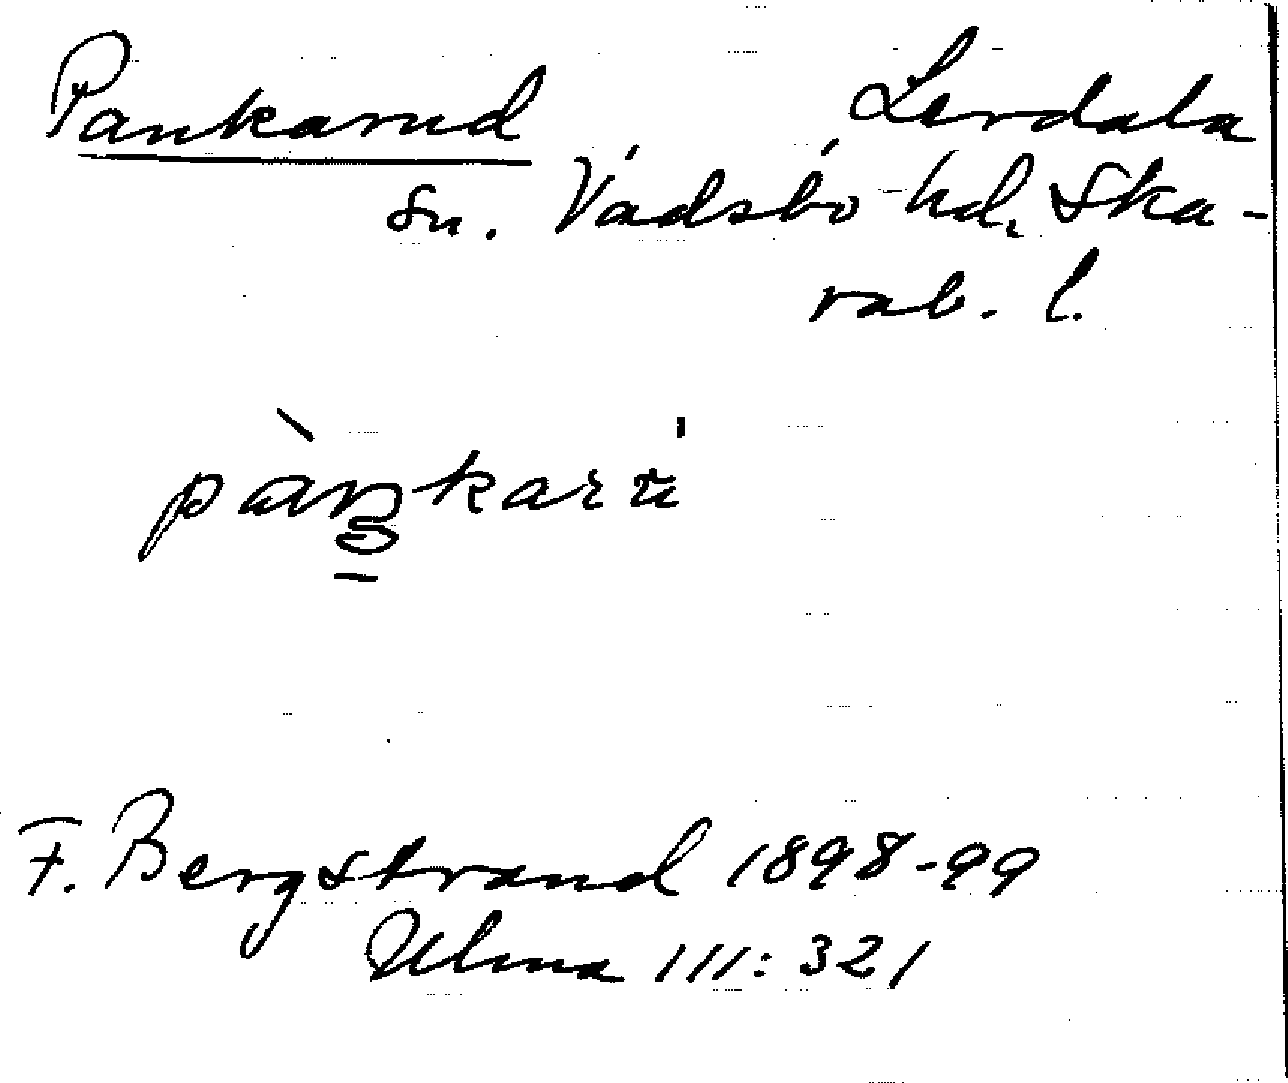 Pankarud Lerdala
sn. Vadsbo hd. Ska-
rab. l.
pàŋkarú
F. Bergstrand 1898-99
Ulma 111:321